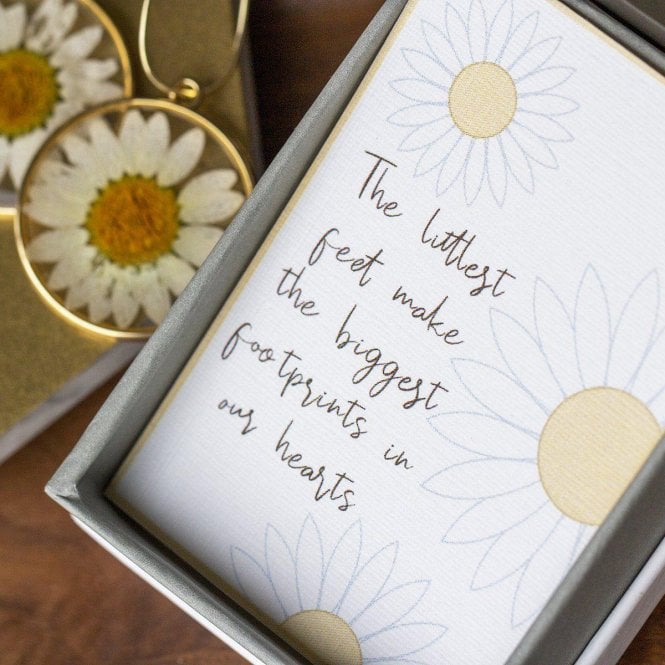 The littlest
feet make
the biggest
footprints in
our hearts